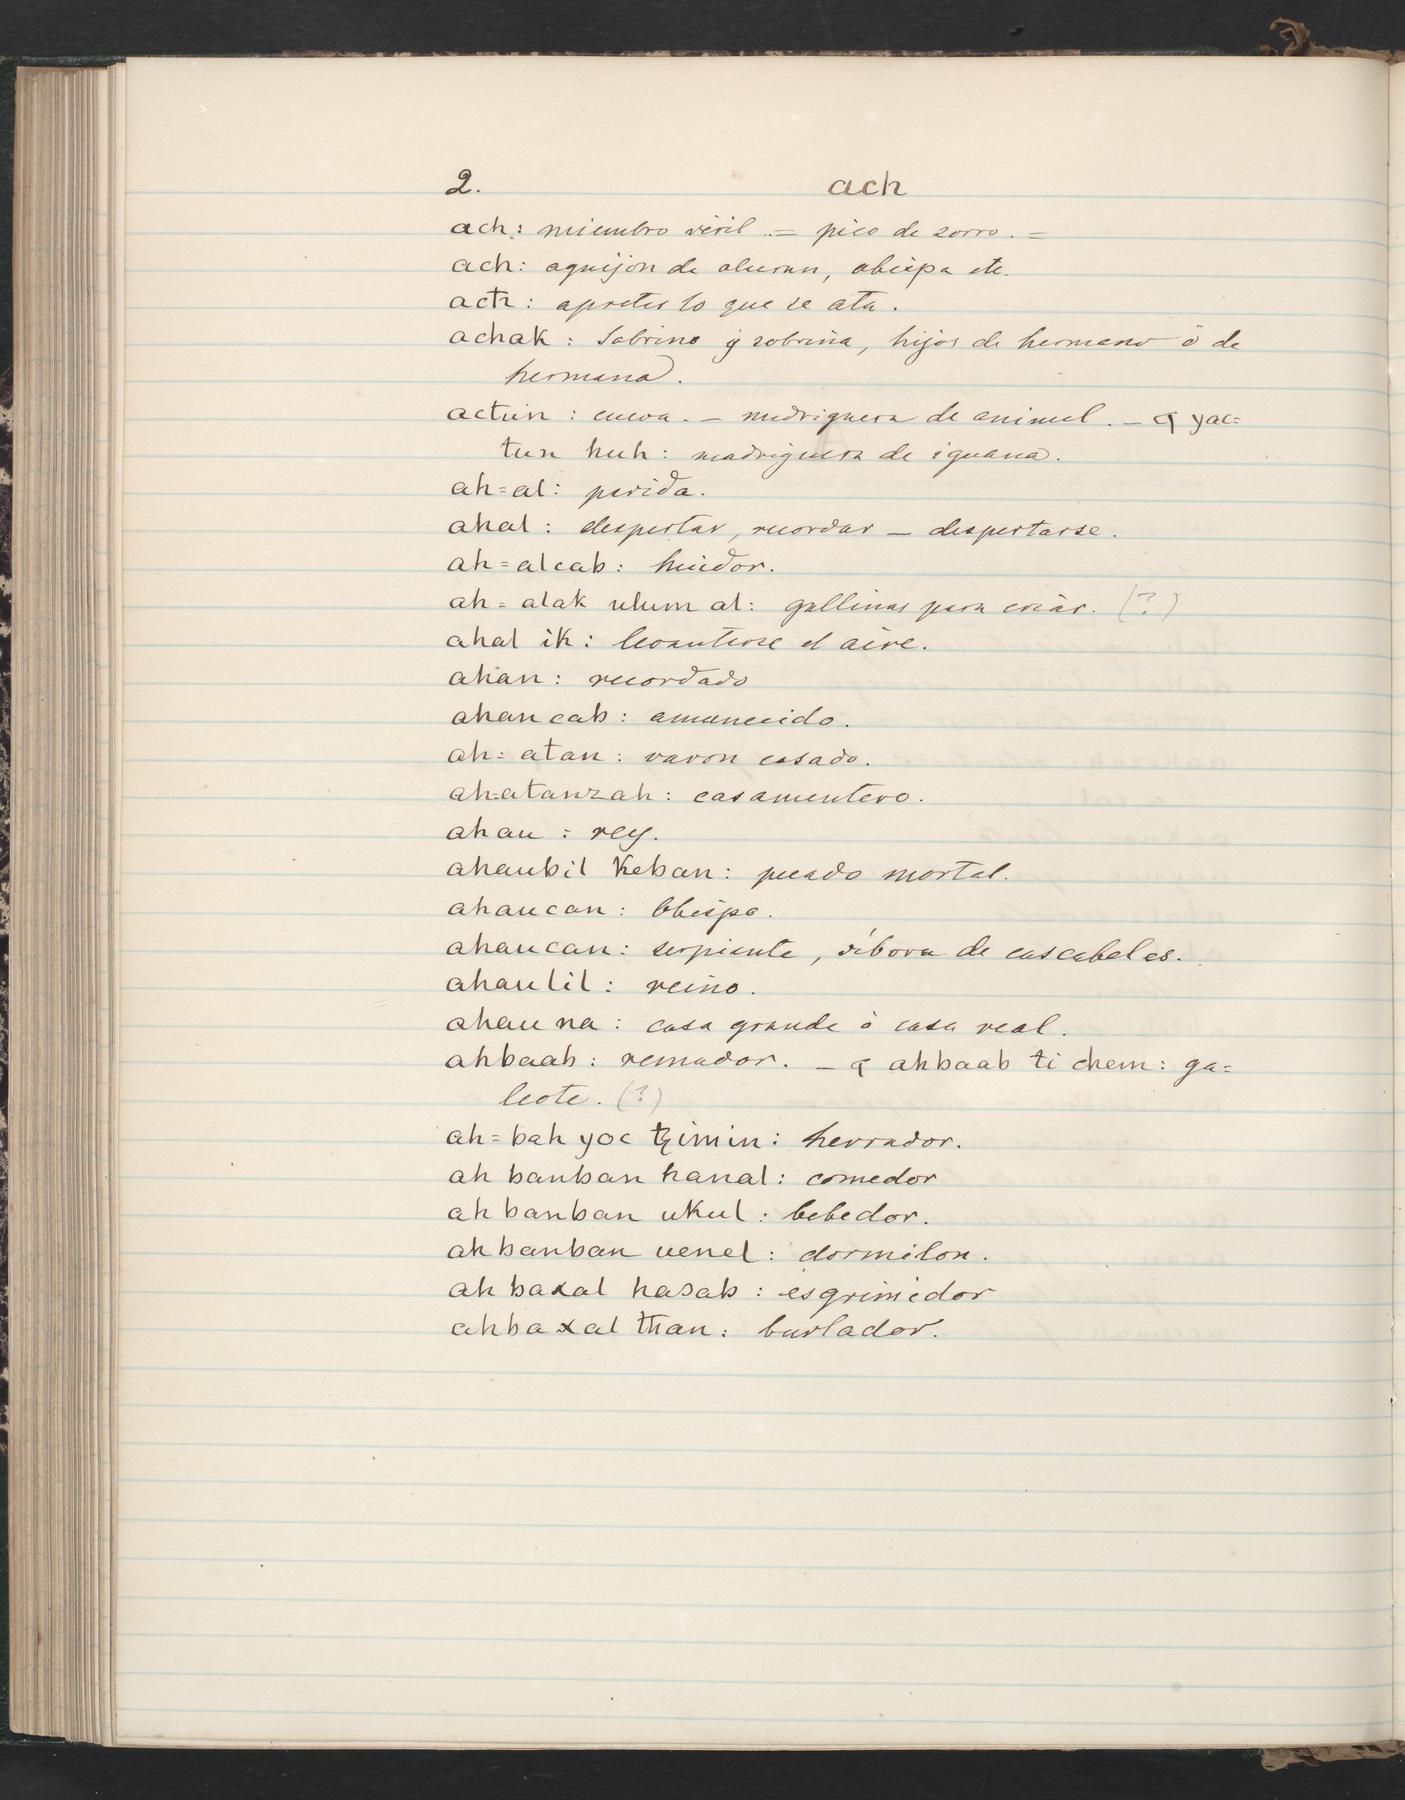 2. ach
ach: miembro viril .= pico de zorro. =
ach: aguijon de alucran, abispa etc.
acħ: apretes lo que se ata.
achak: Sobrino y sobrina, hijos de hermano ó de
hermana.
actun: cueva. — madriguera de animal. — ꟼ yac=
tun huh: madriguera de iguana.
ah=al: parida.
ahal: despertar, recordar — despertarse.
ah=alcab: huidor.
ah=alak ulum al: gallinas para criar. (?)
ahal ik: levantarse el aire.
ahan: recordado
ahancab: amanecido.
ah=atan: varon casado.
ah=atanzah: casamentero.
ahau: rey.
ahaubil keban: pecado mortal.
ahaucan: Obispo.
ahaucan: serpiente, víbora de cascabeles.
ahaulil: reino.
ahau na: casa grande ó casa real.
ahbaab: remador. — ꟼ ahbaab ti chem: ga=
leote. (?)
ah=bah yoc tzimin: herrador.
ah banban hanal: comedor
ah banban ukul: bebedor.
ah banban uenel: dormilon.
ah baxal haɔab: esgrimidor
ahbaxal ŧħan: burlador.